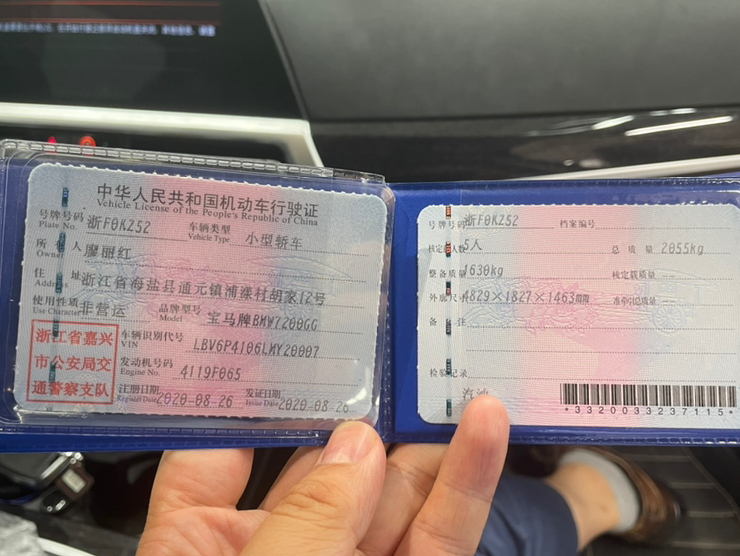 中华人民共和国机动车行驶证
Vehicle License of the People's Republic of China
号牌号码 浙F0KZ52 车辆类型 小型轿车
Plate No. Vehicle Type
所有人 廖丽红
Owner
住址 浙江省海盐县通元镇浦漾村胡家12号
Address
使用性质 非营运 品牌型号 宝马牌BMW7200GG
Use Character Model
浙江省嘉兴
市公安局交
通警察支队
车辆识别代号 LBV6P4106LMY20007
VIN
发动机号码 4119F065
Engine No.
注册日期 2020-08-26 发证日期 2020-08-26
Register Date Issue Date
号牌号码 浙F0KZ52 档案编号
核定载人数 5人 总质量 2055kg
整备质量 1630kg 核定载质量 --
外廓尺寸 4829×1827×1463mm 准牵引总质量 --
备注
检验记录
汽油
*3320033237115*